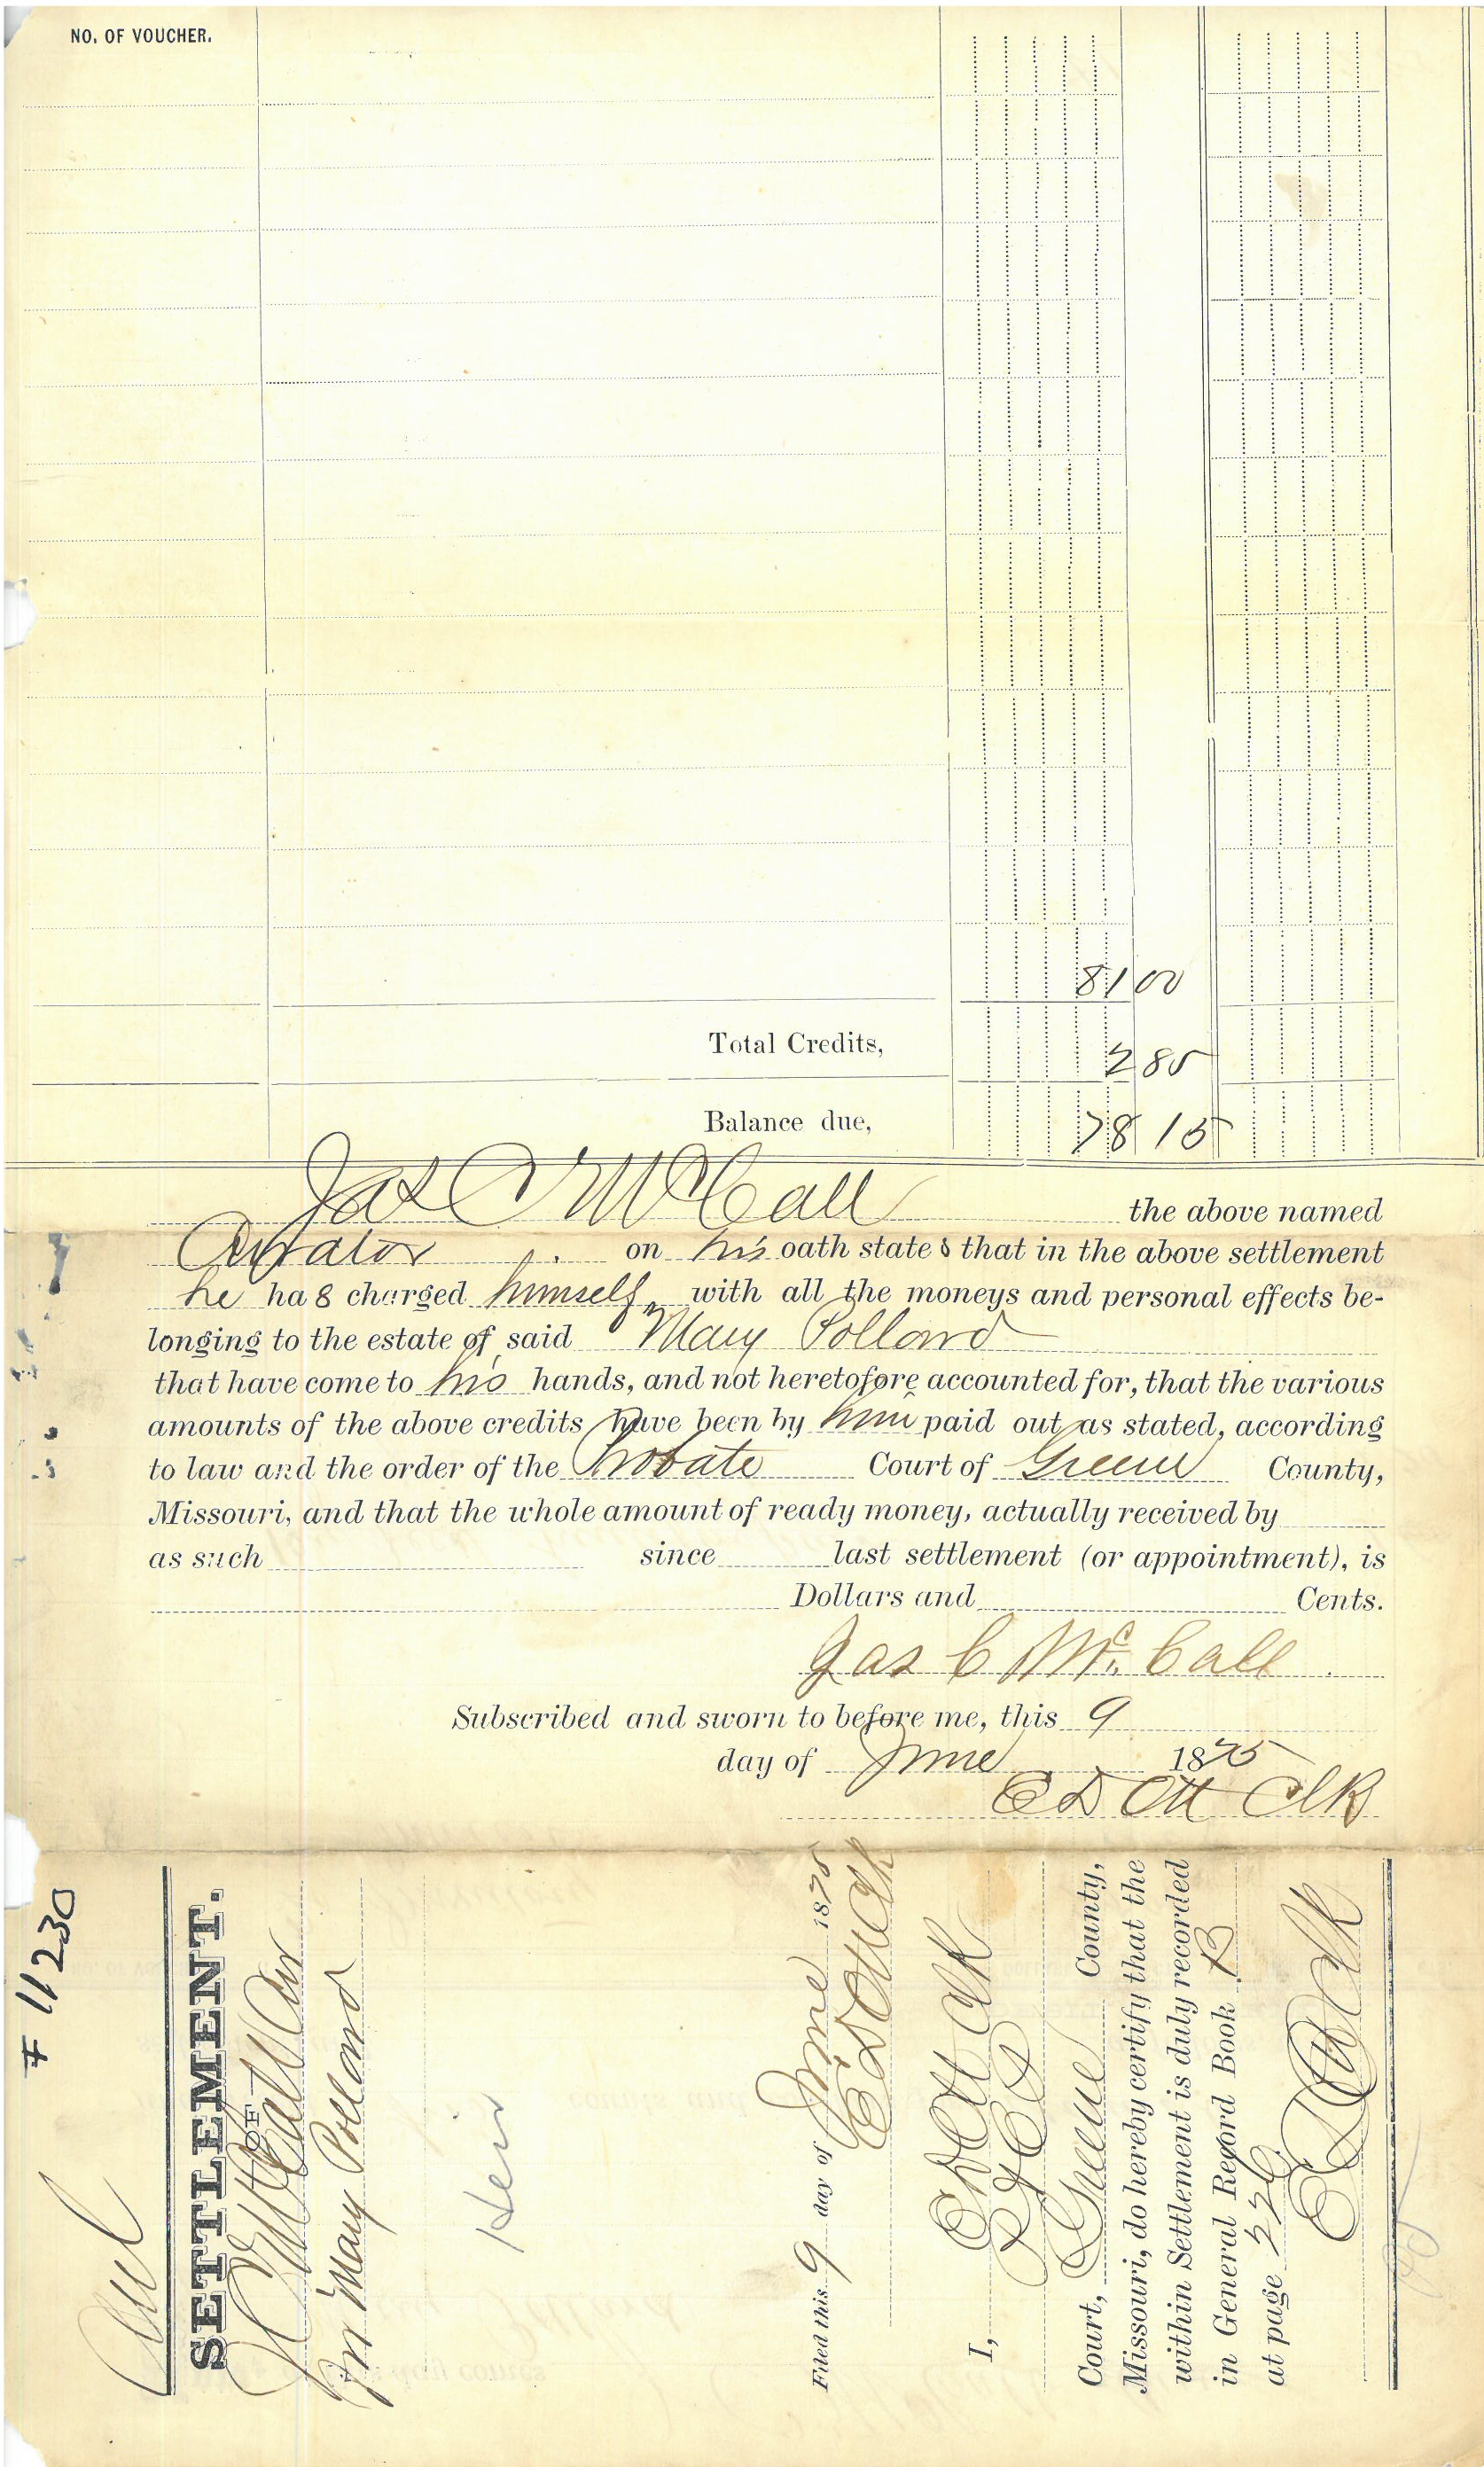 NO. OF VOUCHER.
81 00
Total Credits, 2 85
Balance due, 78 15
Jas C McCall the above named
Curator on his oath states that in the above settlement
he has charged himself with all the moneys and personal effects be-
longing to the estate of said Mary Pollard
that have come to his hands, and not heretofore accounted for, that the various
amounts of the above credits have been by him paid out as stated, according
to law and the order of the Probate Court of Greene County,
Missouri, and that the whole amount of ready money, actually received by
as such since last settlement (or appointment), is
Dollars and Cents.
Jas C McCall
Subscribed and sworn to before me, this 9
day of June 1875
E D Ott Clk
# 11230
SETTLEMENT.
OF
J C McCall Cur
Mary Pollard
Heir
Filed this 9 day of June 1875
E D Ott Clk
I, E D Ott Clk
Court, Greene County,
Missouri, do hereby certify that the
within Settlement is duly recorded
in General Record Book B
at page
E D Ott Clk